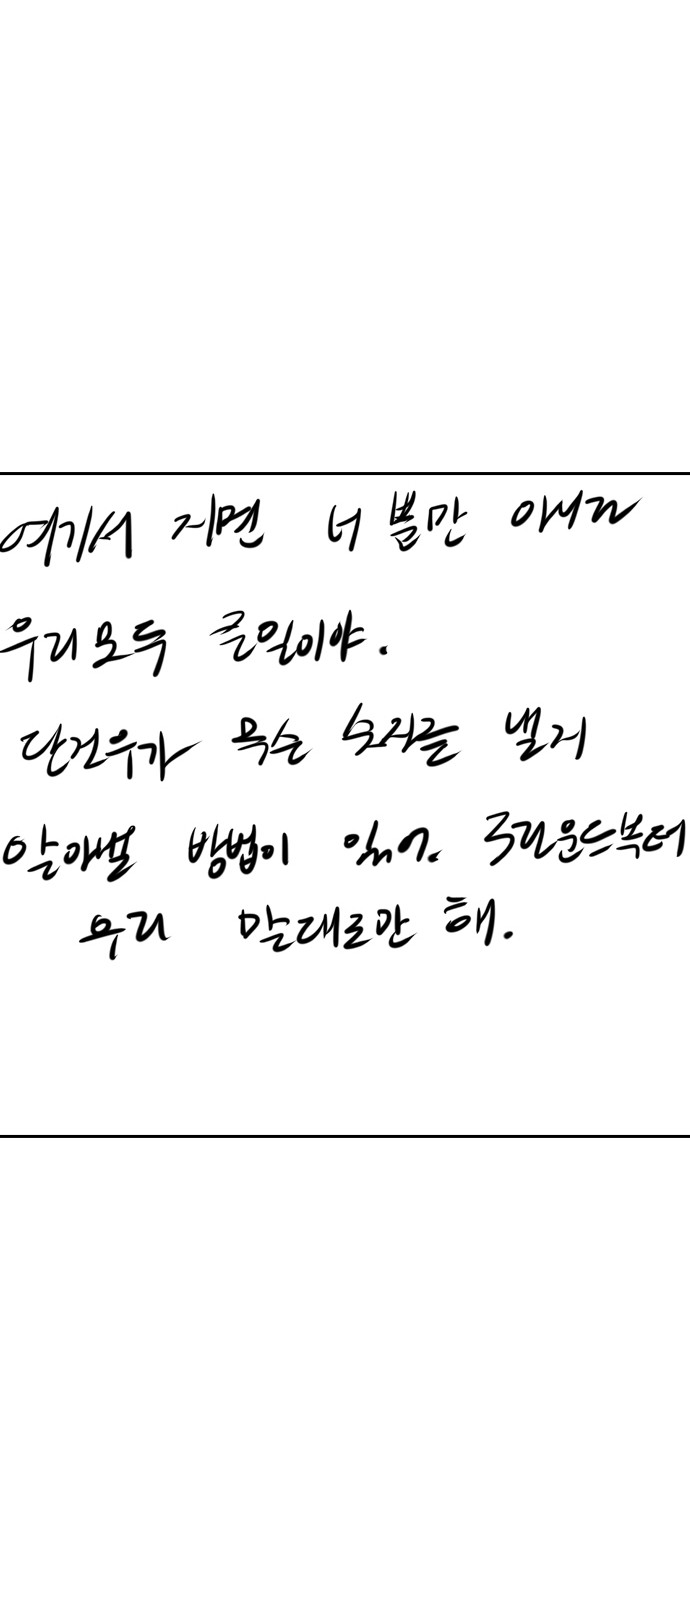 여기서 지면 너 뿔만 아니라
우리모두 큰일이야.
단건우가 무슨 숫자를 낼지
알아낼 방법이 있어. 3라운드부터
우리 말대로만 해.